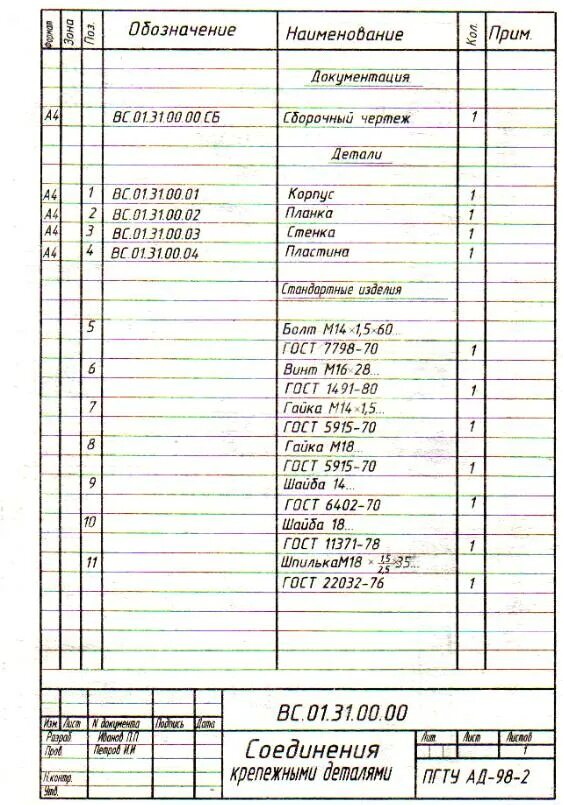 Формат Зона Поз. Обозначение Наименование Кол. Прим.
Документация
А4 ВС.01.31.00.00 СБ Сборочный чертеж 1
Детали
А4 1 ВС.01.31.00.01 Корпус 1
А4 2 ВС.01.31.00.02 Планка 1
А4 3 ВС.01.31.00.03 Стенка 1
А4 4 ВС.01.31.00.04 Пластина 1
Стандартные изделия
5 Болт М14×1,5×60...
ГОСТ 7798-70 1
6 Винт М16×28...
ГОСТ 1491-80 1
7 Гайка М14×1,5...
ГОСТ 5915-70 1
8 Гайка М18...
ГОСТ 5915-70 1
9 Шайба 14...
ГОСТ 6402-70 1
10 Шайба 18...
ГОСТ 11371-78 1
11 Шпилька М18 × 1,5/2,5 ×35...
ГОСТ 22032-76 1
ВС.01.31.00.00
Изм Лист N документа Подпись Дата
Разраб Иванов П.П
Пров. Петров И.И
Н.контр.
Утв.
Соединения
крепежными деталями
Лит. Лист Листов
1
ПГТУ АД-98-2